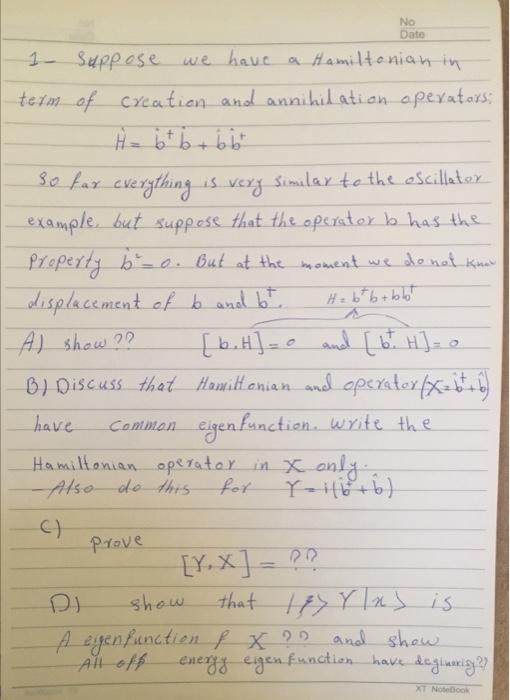 No
Date
1- Suppose we have a Hamiltonian in
term of creation and annihilation operators:
Ĥ = b̂† b̂ + b̂ b̂†
So far everything is very similar to the oscillator
example. but suppose that the operator b has the
Property b̂² = 0. But at the moment we do not know
displacement of b and b†. H = b†b + bb†
A) show ?? [b.H] = 0 and [b†. H] = 0
B) Discuss that Hamiltonian and operator (X = b̂† + b̂)
have common eigenfunction. write the
Hamiltonian operator in X only.
- Also do this for Y = i(b̂† + b̂)
C)
Prove
[Y, X] = ??
D) show that Y|x> is
A eigenfunction f X ?? and show
All off energy eigenfunction have ??
XT NoteBook